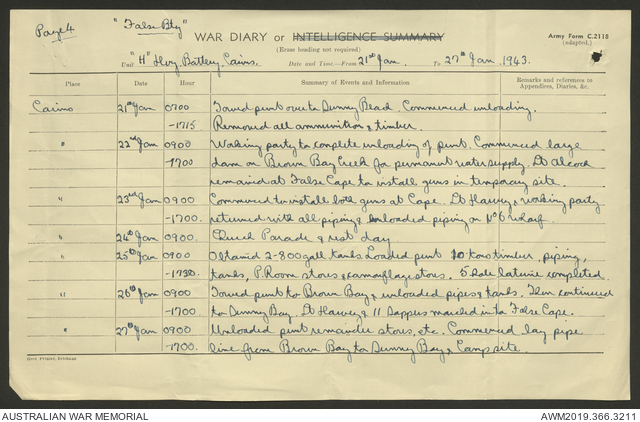 Page 4 "False Bty" WAR DIARY or INTELLIGENCE SUMMARY Army Form C.2118
(Erase heading not required) (adapted.)
Unit "H" Hvy. Battery, Cairns. Date and Time—From 21st Jan. To 27th Jan 1943.
Place Date Hour Summary of Events and Information Remarks and references to Appendices, Diaries, &c.
Cairns 21st Jan 0700 Towed punt over to Sunny Bay. Commenced unloading.
-1715 Removed all ammunition & timber.
" 22nd Jan 0900 Working party to complete unloading of punt. Commenced large
-1700 dam on Brown Bay Creek for permanent water supply. Lt Alcock
remained at False Cape to install guns in temporary site.
" 23rd Jan 0900 Commenced to install both guns at Cape. Lt Harvey & working party
-1700. returned with all piping & unloaded piping on No 6 wharf.
" 24th Jan 0900. Church Parade & rest day.
" 25th Jan 0900 Obtained 2-800 gall tanks. Loaded punt 10 tons timber, piping,
-1730 tanks, P. Room stores & camouflage stores. 5 hole latrine completed.
" 26th Jan 0900 Towed punt to Brown Bay & unloaded pipes & tanks. Then continued
-1700. to Sunny Bay. Lt Harvey & 11 Sappers marched in to False Cape.
" 27th Jan 0900 Unloaded punt remainder stores, etc. Commenced lay pipe
-1700. line from Brown Bay to Sunny Bay & Camp site.
Govt. Printer, Brisbane
AUSTRALIAN WAR MEMORIAL AWM2019.366.3211